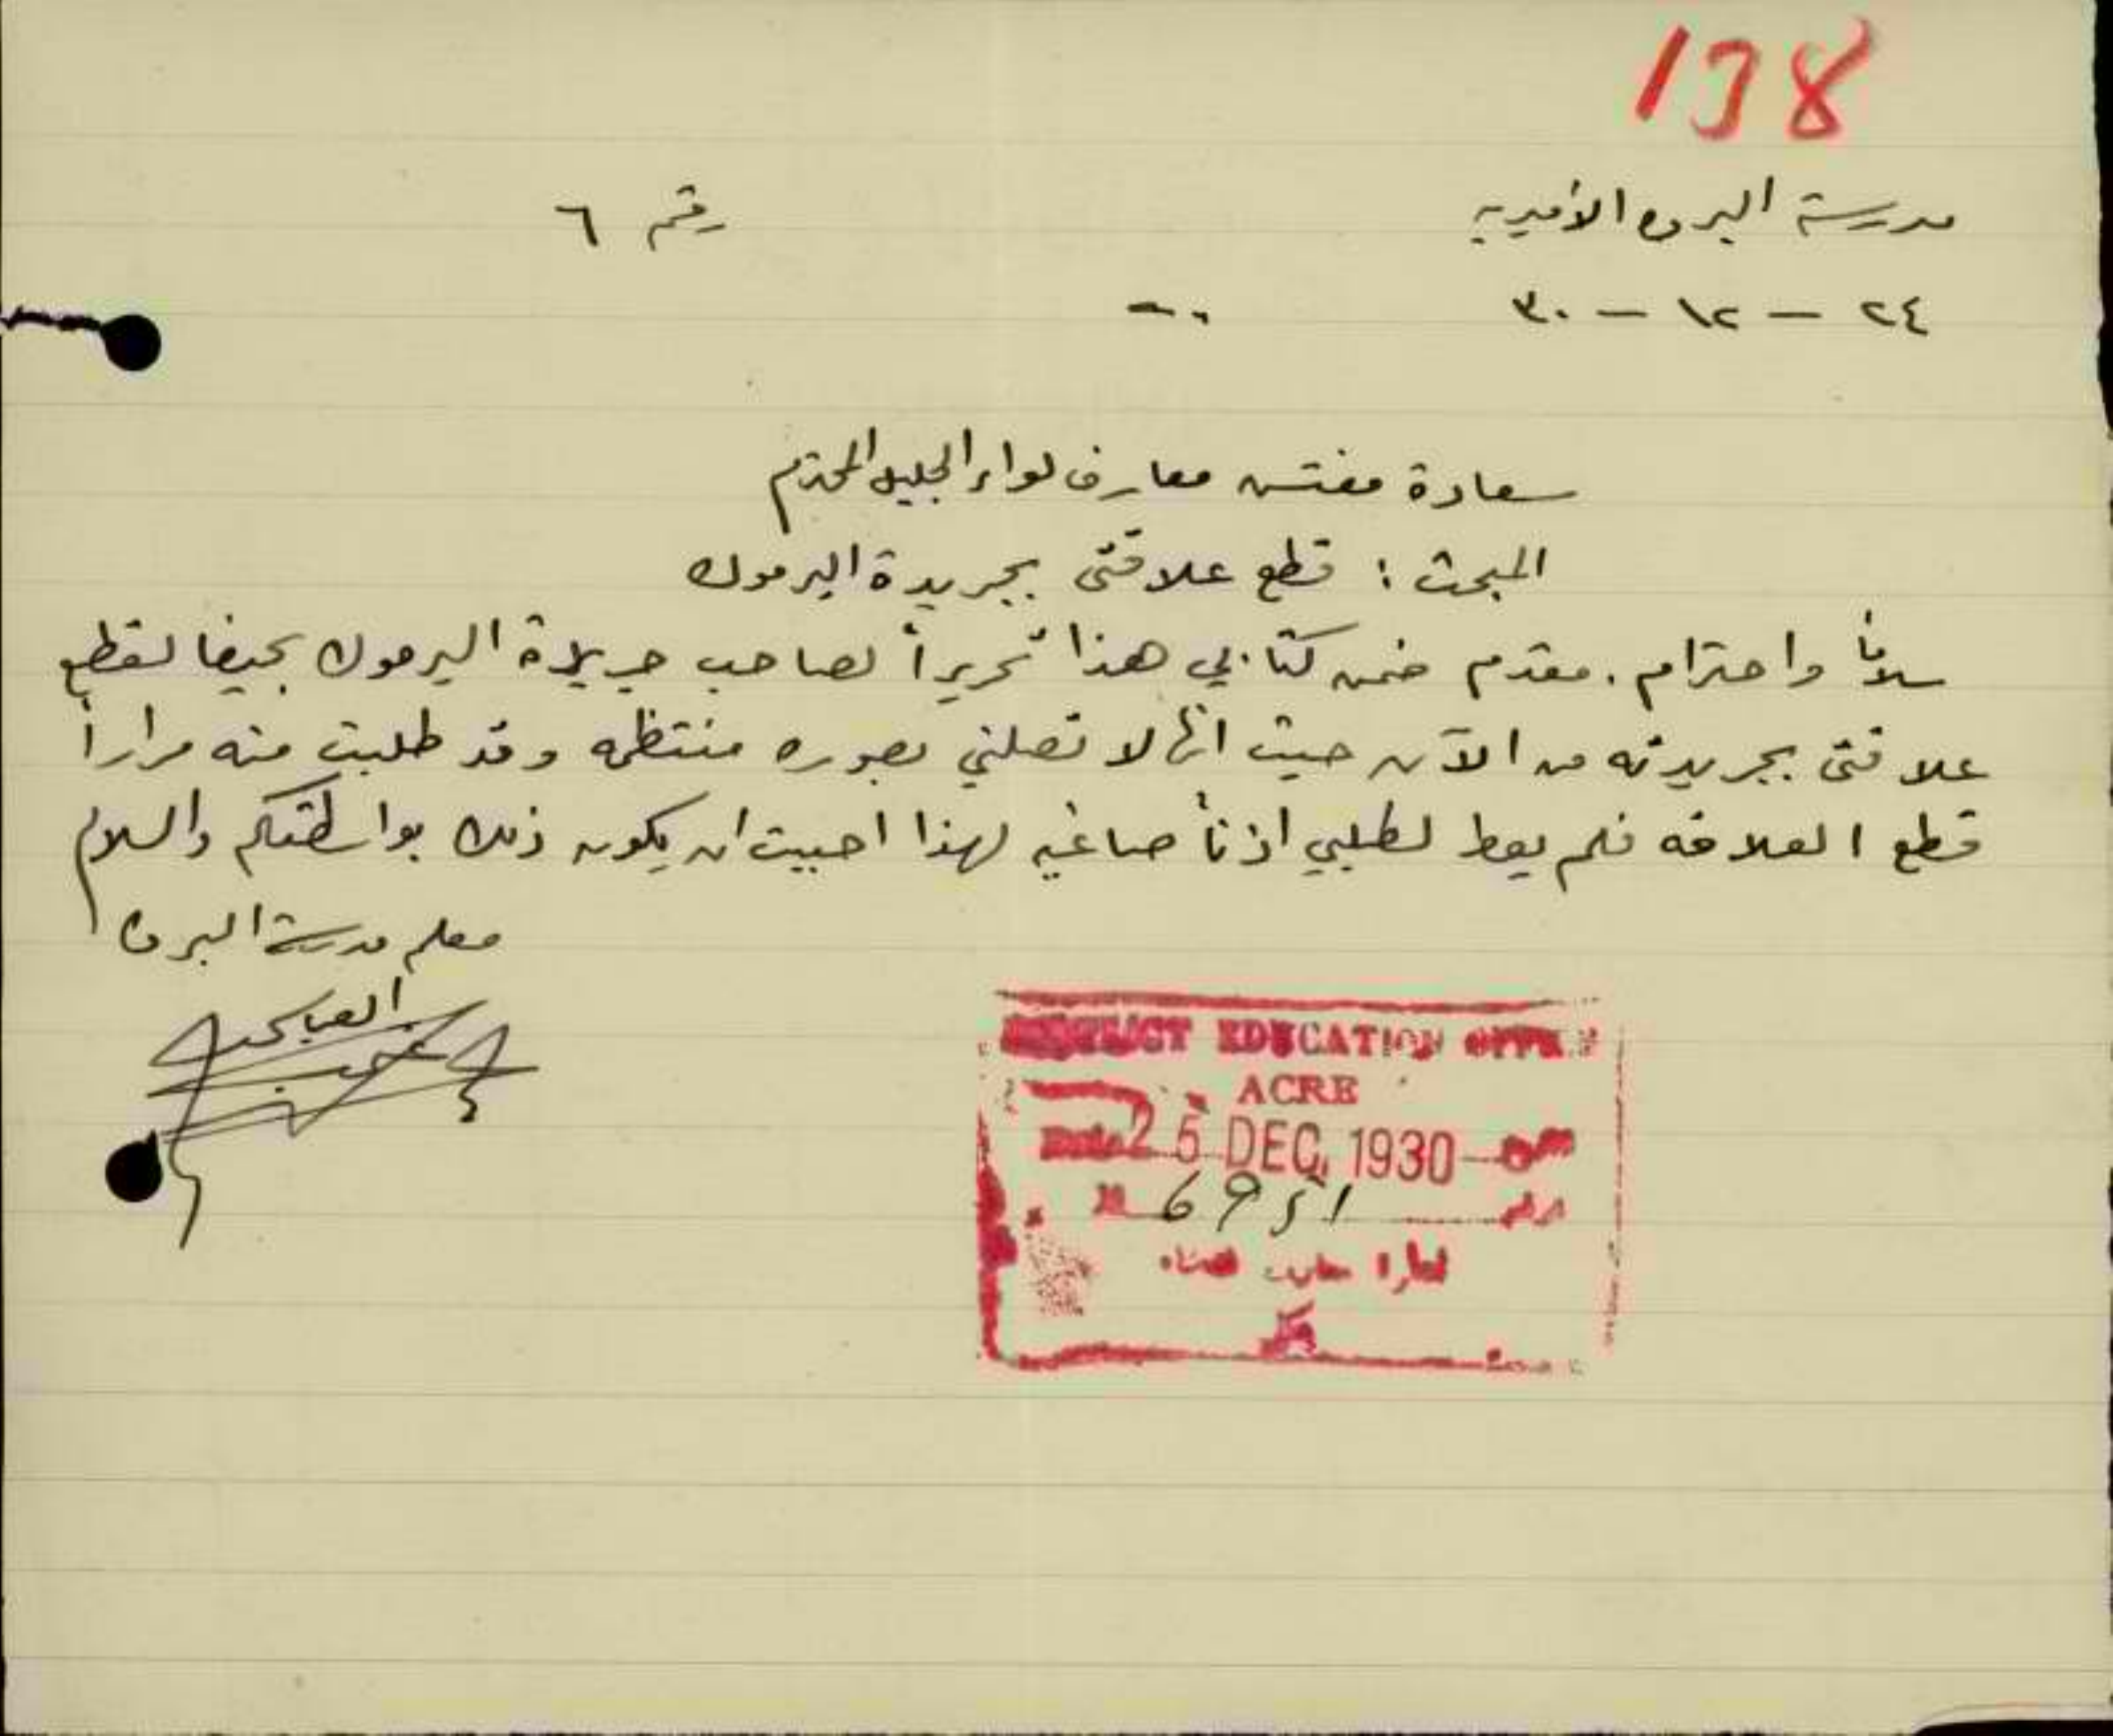 138
مدرسة البروه الأميريه
رقم ٦
٢٤ - ١٢ - ٣٠
سعادة مفتش معارف لواء الجليل المحترم
المبحث : قطع علاقتي بجريدة اليرموك
سلاماً واحترام . مقدم ضمن كتابي هذا تحريراً لصاحب جريدة اليرموك بحيفا لقطع
علاقتي بجريدته من الآن حيث انها لا تصلني بصوره منتظمه وقد طلبت منه مراراً
قطع العلاقه فلم يعط لطلبي اذناً صاغيه لهذا احببت ان يكون ذلك بواسطتكم والسلام
معلم مدرسة البروه
DISTRICT EDUCATION OFFICE
ACRE
Date 25 DEC. 1930
6951
ادارة معارف قضاء
عكا